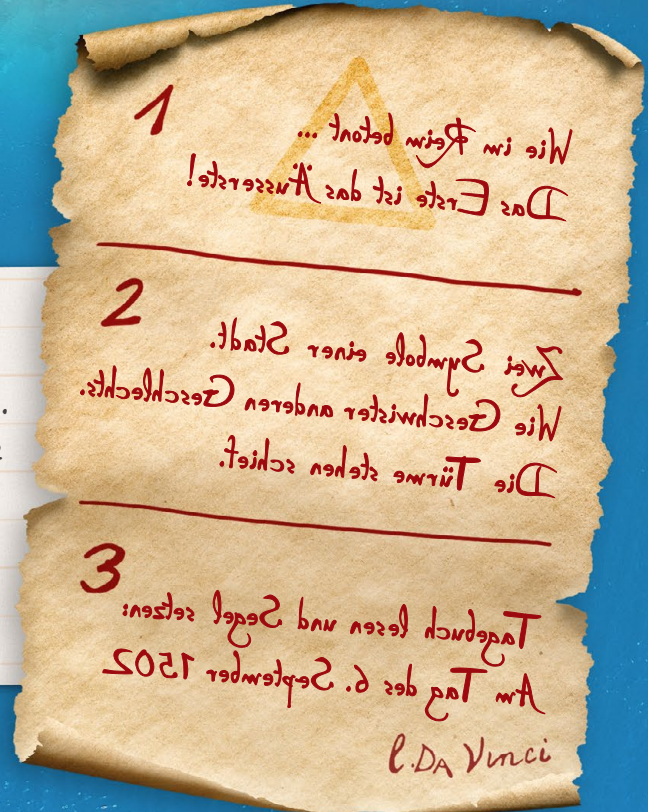 1
Wie im Reim betont ...
Das Erste ist das Äusserste!
2
Zwei Symbole einer Stadt.
Wie Geschwister anderen Geschlechts.
Die Türme stehen schief.
3
Tagebuch lesen und Segel setzen:
Am Tag des 6. September 1502
l. DA Vinci